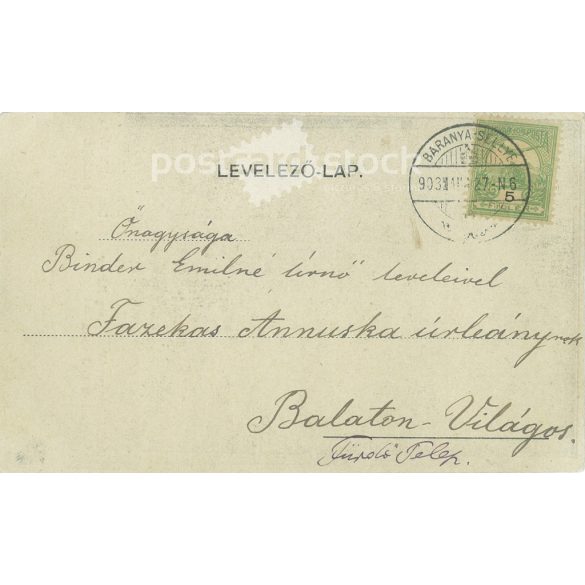 LEVELEZŐ-LAP.
BARANYA-SELLYE
903
27-N6
5
Őnagysága
Binder Emilné úrnő leveleivel
Fazekas Annuska úrleánynak
Balaton-Világos.
Fürdő Telep.